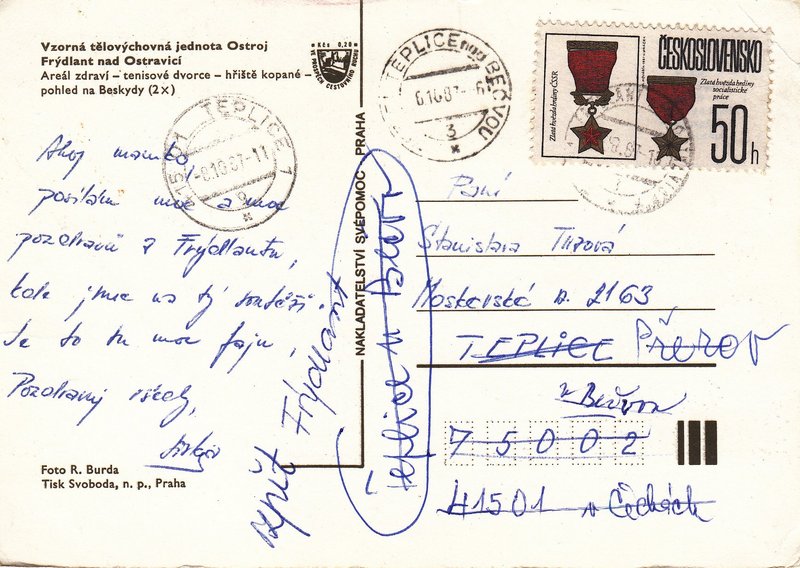 Vzorná tělovýchovná jednota Ostroj
Frýdlant nad Ostravicí
Areál zdraví – tenisové dvorce – hřiště kopané –
pohled na Beskydy (2×)
Kčs 0,20
VE PROSPĚCH CESTOVNÍHO RUCHU
TEPLICE nad BEČVOU
6.10.87-6
3
ČESKOSLOVENSKO
Zlatá hvězda hrdiny ČSSR
Zlatá hvězda hrdiny
socialistické
práce
50h
415 01 TEPLICE 1
-8.10.87-11
Ahoj mamko,
posílám moc a moc
pozdravů z Frýdlantu,
kde jsme na tý soutěži.
Je to tu moc fajn,
Pozdravuj všecky,
Foto R. Burda
Tisk Svoboda, n. p., Praha
NAKLADATELSTVÍ SVÉPOMOC PRAHA
zpět Frýdlant
Teplice n Bečvou
Paní
Stanislava
Moskevská 2163
TEPLICE Přerov
n Bečvou
75002
41501 v Čechách